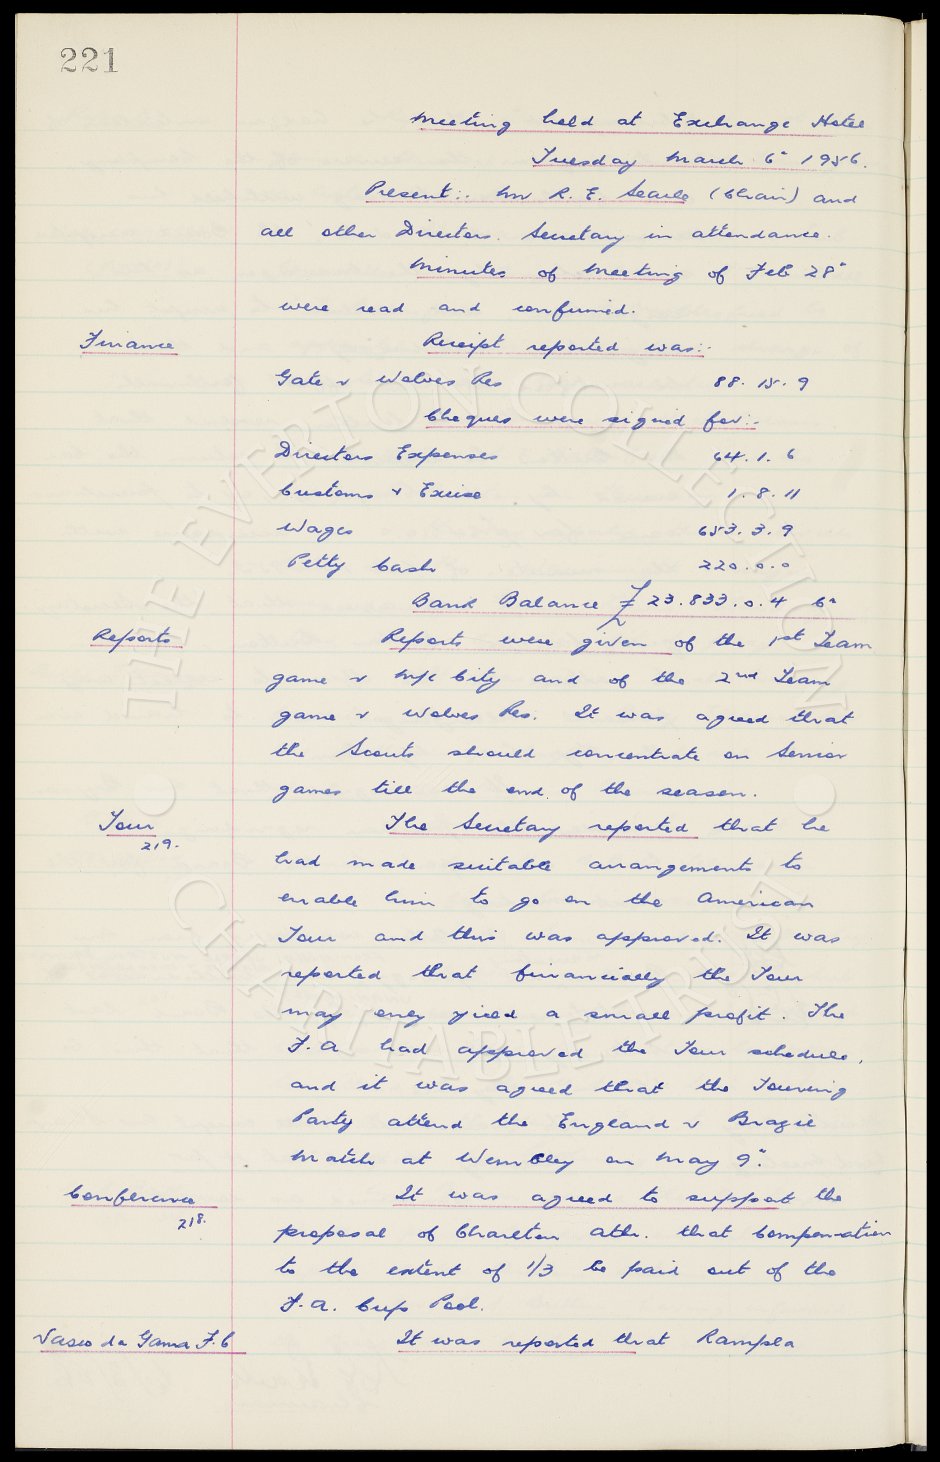 221
Meeting held at Exchange Hotel
Tuesday March 6" 1956.
Present:- Mr R. E. Searle (Chair) and
all other Directors. Secretary in attendance.
Minutes of Meeting of Feb 28"
were read and confirmed.
Finance Receipt reported was:-
Gate v Wolves Res 88. 15. 9
Cheques were signed for:-
Directors Expenses 64. 1. 6
Customs & Excise 1. 8. 11
Wages 653. 3. 9
Petty Cash 220. 0. 0
Bank Balance £23.833. 0. 4
Reports Reports were given of the 1st Team
game v M/c City and of the 2nd Team
game v Wolves Res. It was agreed that
the Scouts should concentrate on Senior
games till the end of the season.
Tour The Secretary reported that he
219.
had made suitable arrangements to
enable him to go on the American
Tour and this was approved. It was
reported that financially the Tour
may only yield a small profit. The
F.A had approved the Tour schedule,
and it was agreed that the Touring
Party attend the England v Brazil
match at Wembley on May 9".
Conference It was agreed to support the
218.
proposal of Charlton Ath. that Compensation
to the extent of 1/3 be paid out of the
F.A. Cup Pool.
Vasco da Gama F.C It was reported that Rampla
THE EVERTON COLLECTION
CHARITABLE TRUST